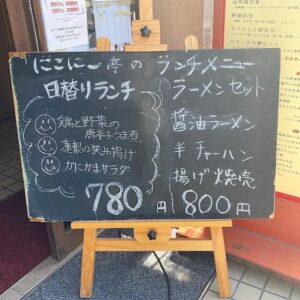 にこにこ亭のランチメニュー
日替りランチ
鶏と野菜の
唐辛子うま煮
蓮根の挟み揚げ
かにかまサラダ
780円
ラーメンセット
醤油ラーメン
半チャーハン
揚げ焼売
800円